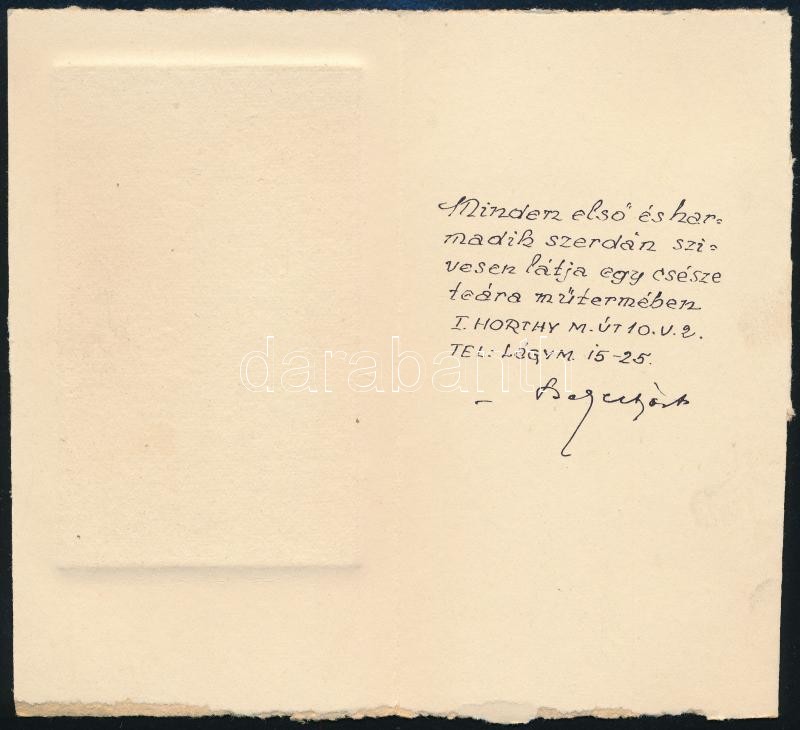 Minden első és har-
madik szerdán szi-
vesen látja egy csésze
teára műtermében
I. HORTHY M. ÚT 10. V. 2.
TEL: LÁGYM. 15-25.
darabanth